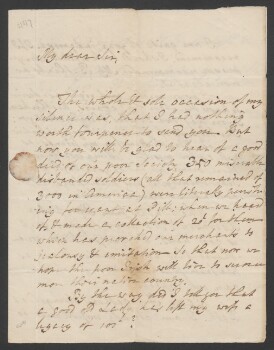 My dear Sir,
The whole & sole occasion of my
Silence was, that I had nothing
worth forepence to send you. But
now you will be glad to hear of a good
deed of our poor Society. 350 miserable
disbanded soldiers (all that remained of
3000 in America) were literally perish-
ing for want at Hill; when we heard
of & made a collection of for them
which has provoked our merchants to
jealousy & imitation So that now we
hope the poor Irish will live to see once
more their native country.
By the way did I tell you that
a good old Lady has left my wife a
legacy of 100£?